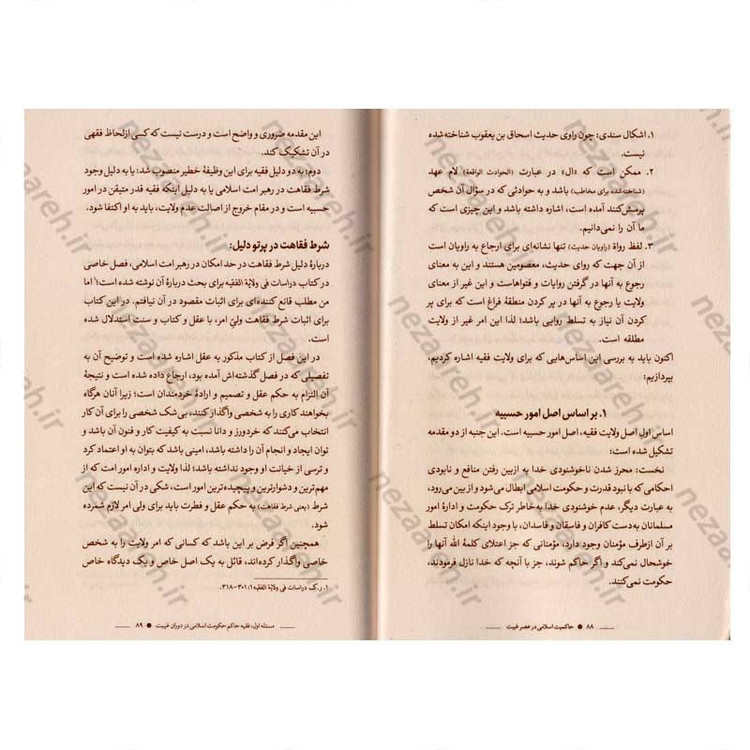 ۱. اشکال سندی: چون راوی حدیث اسحاق بن یعقوب شناخته شده
نیست.
۲. ممکن است که «ال» در عبارت (الحوادث الواقعة) لام عهد
(شناخته شده برای مخاطب) باشد و به حوادثی که در سؤال آن شخص
پرسش‌کنند آمده است، اشاره داشته باشد و این چیزی است که
ما آن را نمی‌دانیم.
۳. لفظ رواة (راویان حدیث) تنها نشانه‌ای برای ارجاع به راویان است
از آن جهت که روای حدیث، معصومین هستند و این به معنای
رجوع به آنها در گرفتن روایات و فتواهاست و این غیر از معنای
ولایت یا رجوع به آنها در پر کردن منطقهٔ فراغ است که برای پر
کردن آن نیاز به تسلط روایی باشد؛ لذا این امر غیر از ولایت
مطلقه است.
اکنون باید به بررسی این اساس‌هایی که برای ولایت فقیه اشاره کردیم،
بپردازیم:
۱. بر اساس اصل امور حسبیه
اساس اول اصل ولایت فقیه، اصل امور حسبیه است. این جنبه از دو مقدمه
تشکیل شده است:
نخست: محرز شدن ناخوشنودی خدا به ازبین رفتن منافع و نابودی
احکامی که با نبود قدرت و حکومت اسلامی ابطال می‌شود و از بین می‌رود،
به عبارت دیگر، عدم خوشنودی خدا به‌خاطر ترک حکومت و ادارهٔ امور
مسلمانان به‌دست کافران و فاسقان و فاسدان، با وجود اینکه امکان تسلط
بر آن ازطرف مؤمنان وجود دارد، مؤمنانی که جز اعتلای کلمة الله آنها را
خوشحال نمی‌کند و اگر حاکم شوند، جز با آنچه که خدا نازل فرمودند،
حکومت نمی‌کنند.
۸۸ ● حاکمیت اسلامی در عصر غیبت
این مقدمه ضروری و واضح است و درست نیست که کسی ازلحاظ فقهی
در آن تشکیک کند.
دوم: به دو دلیل فقیه برای این وظیفهٔ خطیر منصوب شد: یا به دلیل وجود
شرط فقاهت در رهبر امت اسلامی یا به دلیل اینکه فقیه قدر متیقن در امور
حسبیه است و در مقام خروج از اصالت عدم ولایت، باید به او اکتفا شود.
شرط فقاهت در پرتو دلیل:
دربارهٔ دلیل شرط فقاهت در حد امکان در رهبر امت اسلامی، فصل خاصی
در کتاب دراسات فی ولایة الفقیه برای بحث دربارهٔ آن نوشته شده است؛۱ اما
من مطلب قانع کننده‌ای برای اثبات مقصود در آن نیافتم. در این کتاب
برای اثبات شرط فقاهت ولیّ امر، با عقل و کتاب و سنت استدلال شده
است.
در این فصل از کتاب مذکور به عقل اشاره شده است و توضیح آن به
تفصیلی که در فصل گذشته‌اش آمده بود، ارجاع داده شده است و نتیجهٔ
آن التزام به حکم عقل و تصمیم و ارادهٔ خردمندان است؛ زیرا آنان هرگاه
بخواهند کاری را به شخصی واگذار کنند، بی‌شک شخصی را برای آن کار
انتخاب می‌کنند که خردورز و دانا نسبت به کیفیت کار و فنون آن باشد و
توان ایجاد و انجام آن را داشته باشد، امینی باشد که بتوان به او اعتماد کرد
و ترسی از خیانت او وجود نداشته باشد؛ لذا ولایت و اداره امور امت که از
مهم‌ترین و دشوارترین و پیچیده‌ترین امور است، شکی در آن نیست که این
شرط (یعنی شرط فقاهت) به حکم عقل و فطرت باید برای ولی امر لازم شمرده
شود.
همچنین اگر فرض بر این باشد که کسانی که امر ولایت را به شخص
خاصی واگذار کرده‌اند، قائل به یک اصل خاص و یک دیدگاه خاص
۱. ر.ک دراسات فی ولایة الفقیه ۱: ۳۰۱-۳۱۸.
مسئله اول: فقیه حاکم حکومت اسلامی در دوران غیبت ● ۸۹
nezaareh.ir